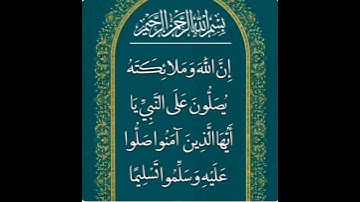 بسم الله الرحمن الرحيم
إِنَّ اللَّهَ وَمَلَائِكَتَهُ
يُصَلُّونَ عَلَى النَّبِيِّ يَا
أَيُّهَا الَّذِينَ آمَنُوا صَلُّوا
عَلَيْهِ وَسَلِّمُوا تَسْلِيمًا